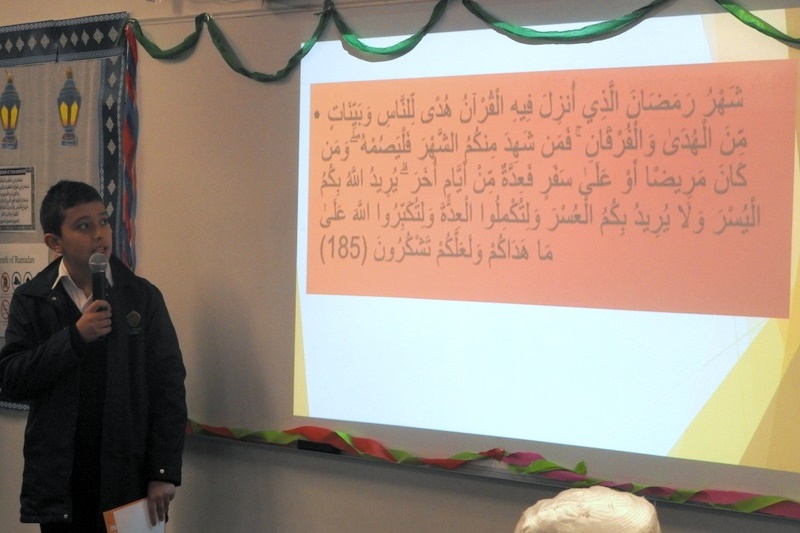 • شَهْرُ رَمَضَانَ الَّذِي أُنزِلَ فِيهِ الْقُرْآنُ هُدًى لِّلنَّاسِ وَبَيِّنَاتٍ
مِّنَ الْهُدَىٰ وَالْفُرْقَانِ ۚ فَمَن شَهِدَ مِنكُمُ الشَّهْرَ فَلْيَصُمْهُ ۖ وَمَن
كَانَ مَرِيضًا أَوْ عَلَىٰ سَفَرٍ فَعِدَّةٌ مِّنْ أَيَّامٍ أُخَرَ ۗ يُرِيدُ اللَّهُ بِكُمُ
الْيُسْرَ وَلَا يُرِيدُ بِكُمُ الْعُسْرَ وَلِتُكْمِلُوا الْعِدَّةَ وَلِتُكَبِّرُوا اللَّهَ عَلَىٰ
مَا هَدَاكُمْ وَلَعَلَّكُمْ تَشْكُرُونَ (185)
of Ramadan